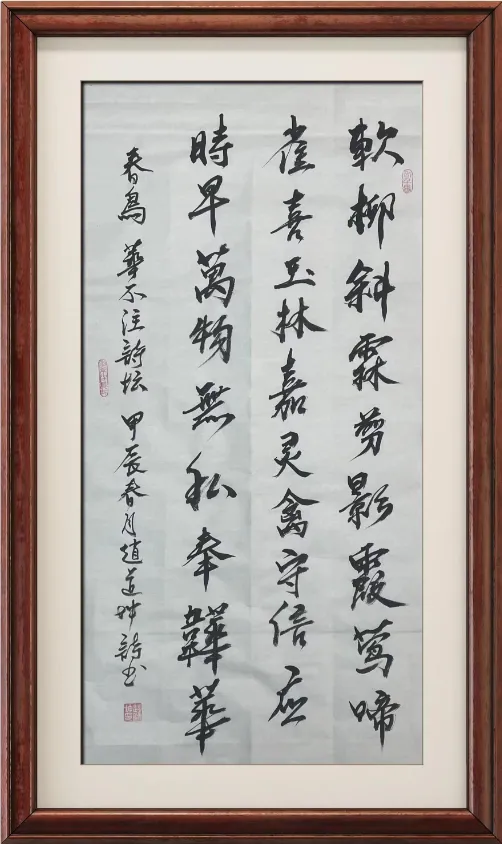 軟柳斜霖剪影霞莺啼
雀喜玉林嘉灵禽守信应
時早萬物無私奉韡華
春鳥 華不注詩坛 甲辰春月趙道詩书